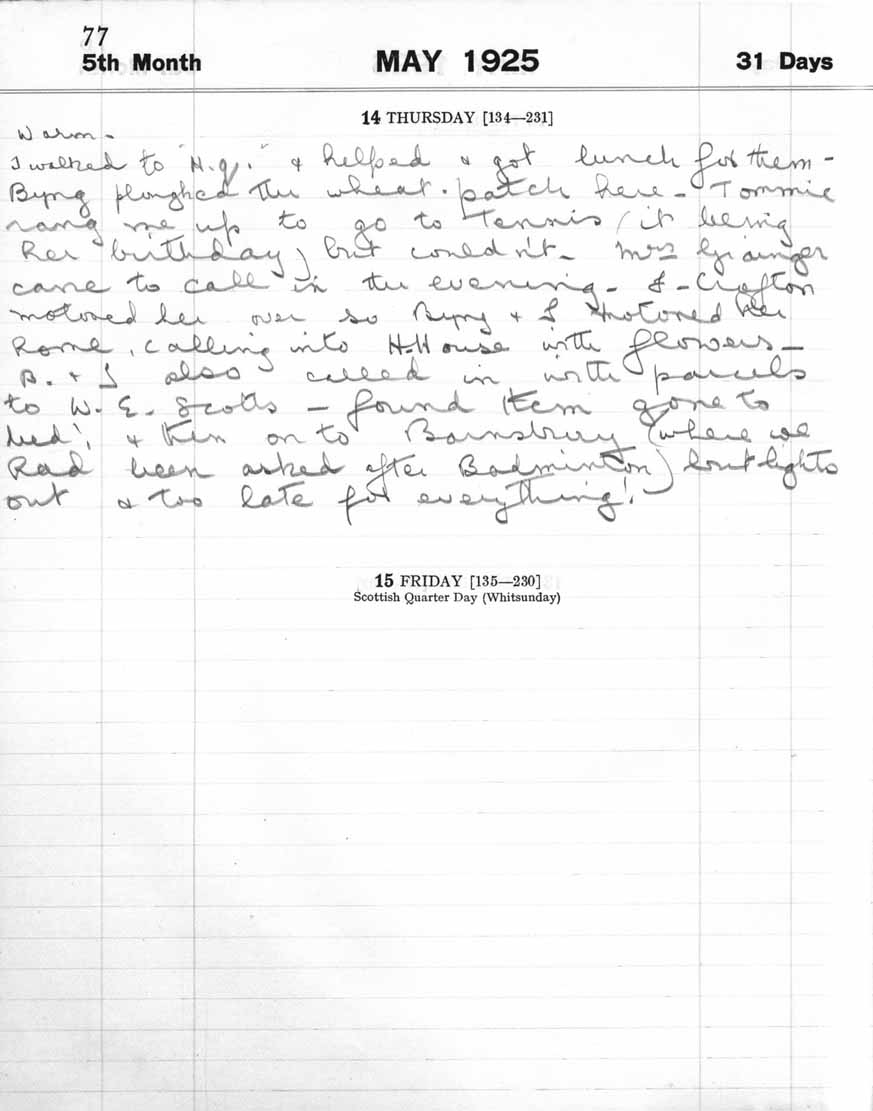 77
5th Month MAY 1925 31 Days
14 THURSDAY [134—231]
Warm -
I walked to "H.Q." & helped & got lunch for them -
Byng ploughed the wheat. patch here - Tommie
rang me up to go to Tennis (it being
her birthday) but couldn't - Mrs Grainger
came to call in the evening - & - Crofton
motored her over so Byng & I motored her
home, calling into H.House with flowers -
B. & I also called in with parcels
to W. E. Scotts - found them gone to
bed!, & then on to Barnsbury (where we
had been asked after Badminton) but lights
out & too late for everything!
15 FRIDAY [135—230]
Scottish Quarter Day (Whitsunday)